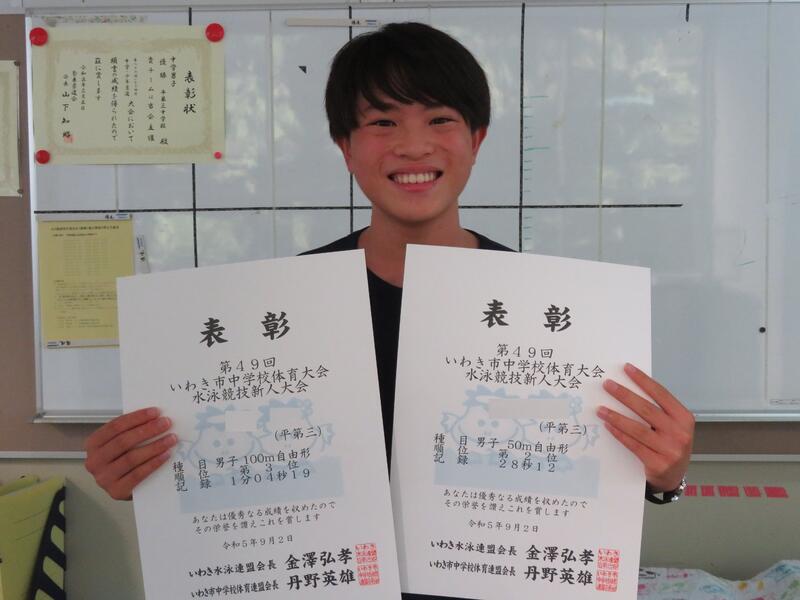 表彰状
中学男子
優勝 平第三中学校 殿
大会において
山下知昭
表彰
第49回
いわき市中学校体育大会
水泳競技新人大会
(平第三)
種目 男子 100m自由形
順位 第3位
記録 1分04秒19
あなたは優秀なる成績を収めたので
その栄誉を讃えこれを賞します
令和5年9月2日
いわき水泳連盟会長 金澤弘孝
いわき市中学校体育連盟会長 丹野英雄
表彰
第49回
いわき市中学校体育大会
水泳競技新人大会
(平第三)
種目 男子 50m自由形
順位 第2位
記録 28秒12
あなたは優秀なる成績を収めたので
その栄誉を讃えこれを賞します
令和5年9月2日
いわき水泳連盟会長 金澤弘孝
いわき市中学校体育連盟会長 丹野英雄